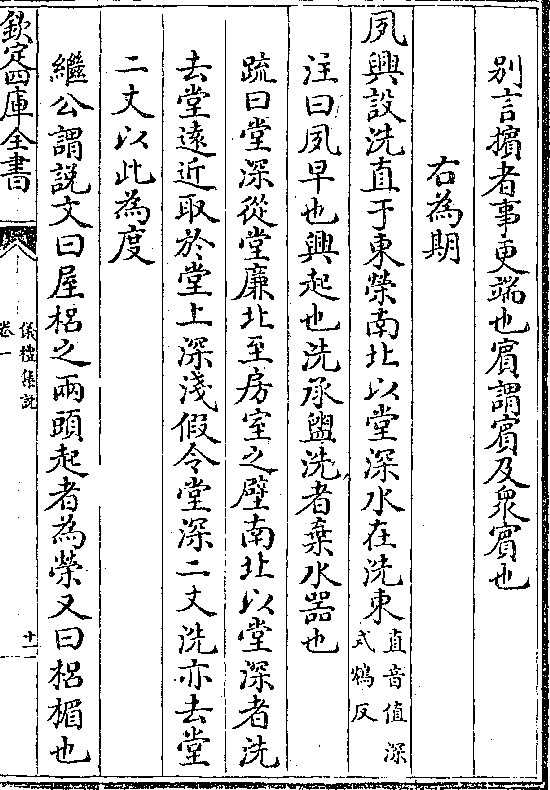 别言擯者事更端也賓謂賓及衆賓也
右為期
夙興設洗直于東榮南北以堂深水在洗東直音值深式鴆反
注曰夙早也興起也洗承盥洗者棄水器也
疏曰堂深從堂廉北至房室之壁南北以堂深者洗
去堂遠近取於堂上深淺假令堂深二丈洗亦去堂
二丈以此為度
繼公謂説文曰屋梠之兩頭起者為榮又曰梠楣也
欽定四庫全書
儀禮集説
卷一
十一